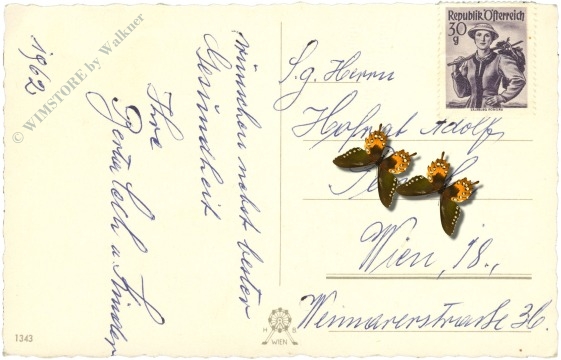 1962
wünschen nebst bester
Gesundheit
Ihre
u. Kinder
© WIMSTORE by Walkner
Republik Österreich
30
g
S. g. Herrn
Hofrat Adolf
Wien, 18.,
Weimarerstraße 36.
1343
H B
WIEN